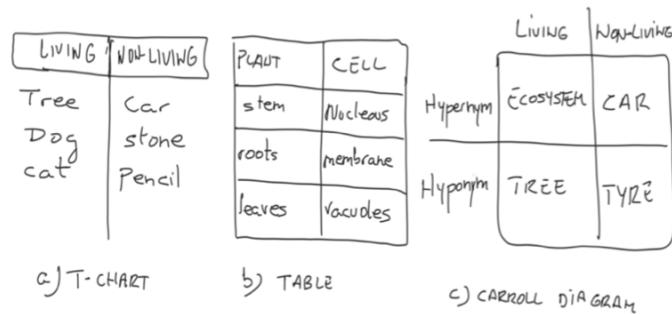 LIVING NON-LIVING
Tree Car
Dog stone
cat Pencil
a) T-CHART
PLANT CELL
stem Nucleous
roots membrane
leaves vacuoles
b) TABLE
LIVING NON-LIVING
Hypernym ECOSYSTEM CAR
Hyponym TREE TYRE
c) CARROLL DIAGRAM